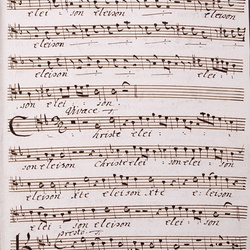 son eleison eleison
eleison
eleison elei:
son elei son.
Vivace
Christe elei:
son eleison Christe elei: son elei:
son eleison xte eleison xte e: leison
elei son eleison elei: son
presto